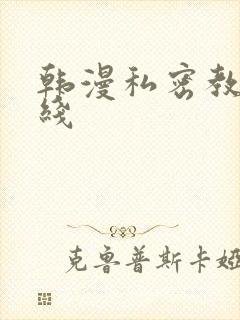 韩漫私密教
线
克鲁普斯卡娅